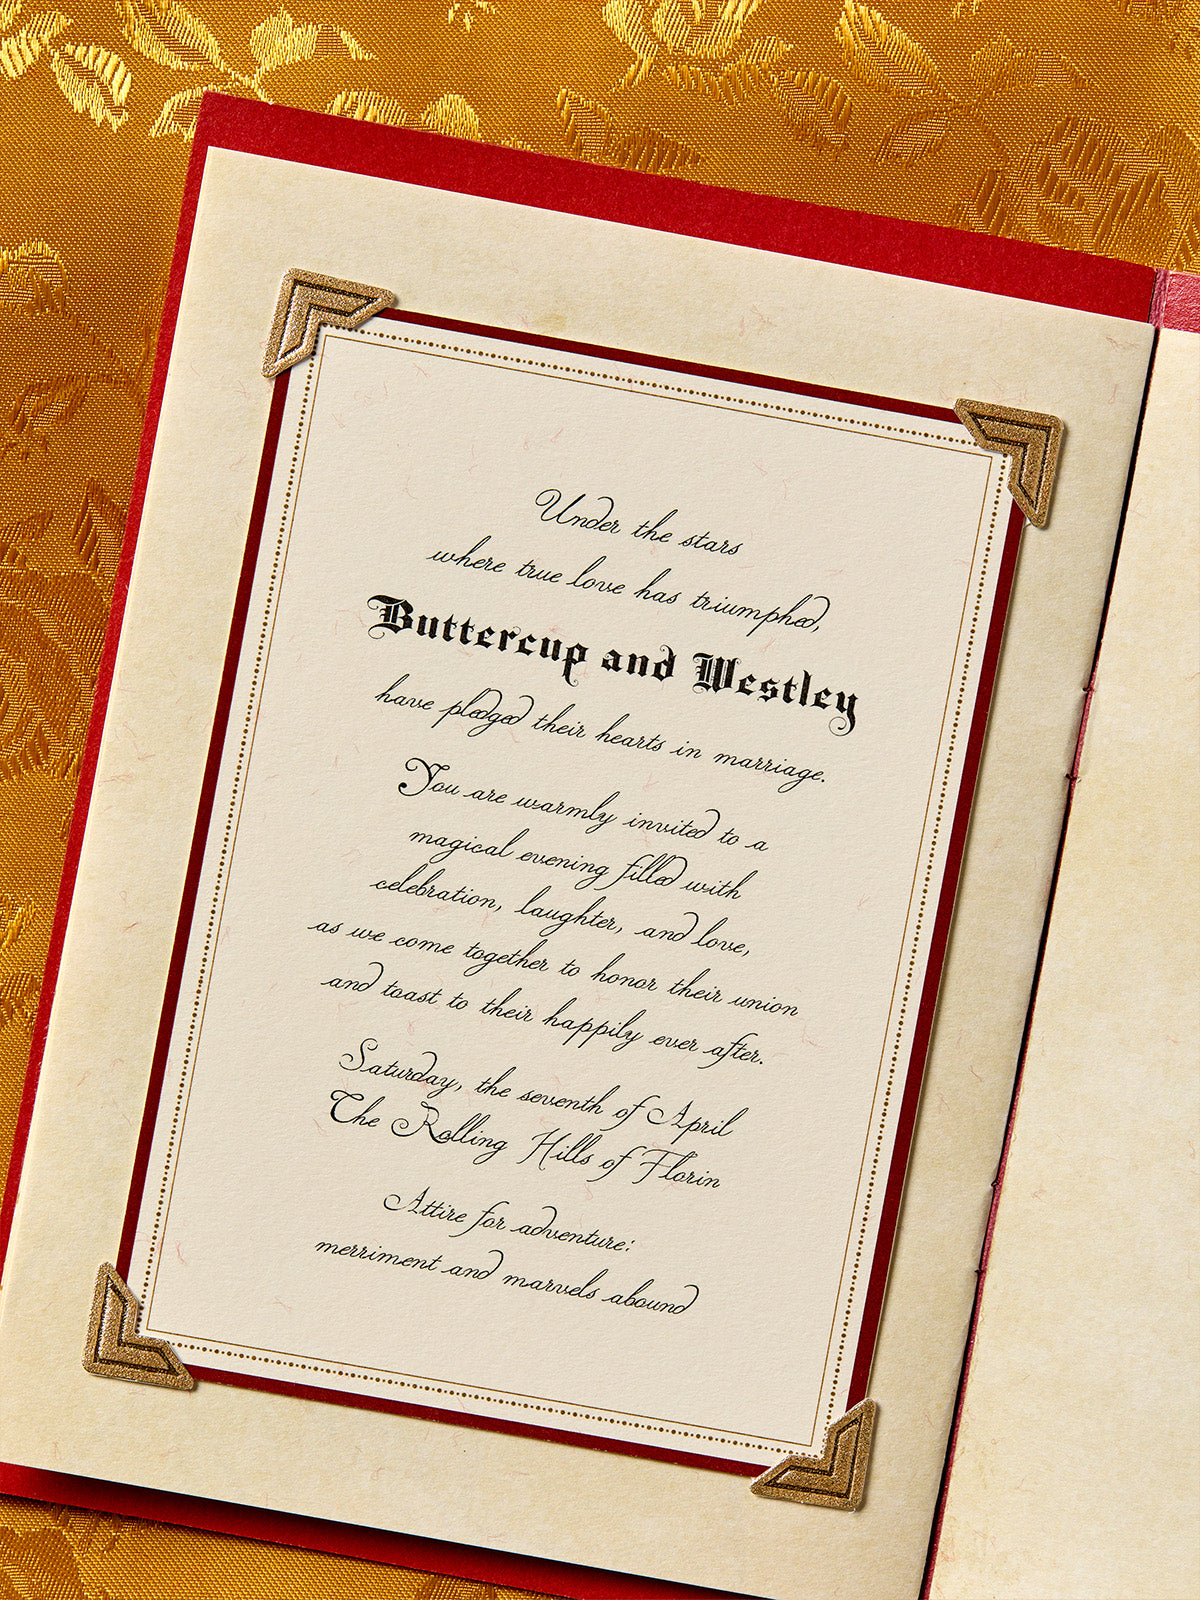 Under the stars
where true love has triumphed,
Buttercup and Westley
have pledged their hearts in marriage.
You are warmly invited to a
magical evening filled with
celebration, laughter, and love,
as we come together to honor their union
and toast to their happily ever after.
Saturday, the seventh of April
The Rolling Hills of Florin
Attire for adventure:
merriment and marvels abound